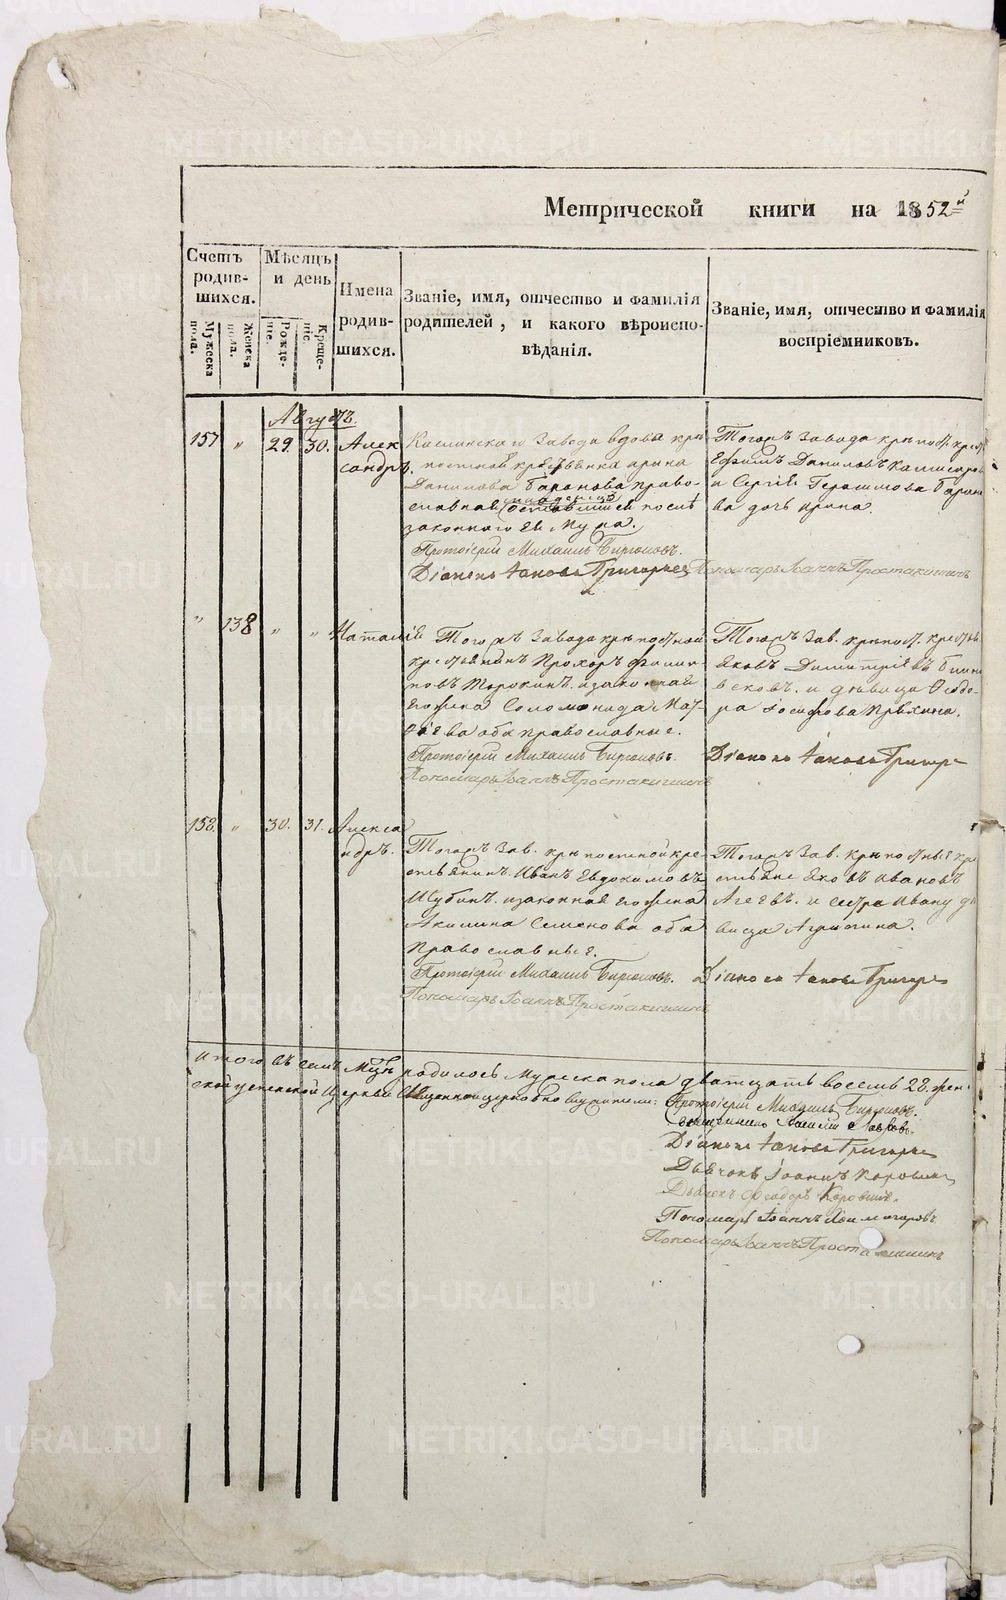 Метрической книги на 1852й
Счетъ родив-шихся.
Мужеска пола.
Женска пола.
Мѣсяцъ и день
Рожде-ніе.
Креще-ніе.
Имена родив-шихся.
Званіе, имя, отчество и фамилія
родителей, и какого вѣроиспо-
вѣданія.
Званіе, имя, отчество и фамилія
воспріемниковъ.
Августъ.
157 " 29. 30. Алек
сандръ.
Каслинскаго Завода вдова крѣ
постная крестьянка Арина
Данилова Баранова право-
славная
законнаго ея мужа.
Протоіерей Михаилъ Бирюковъ.
Діаконъ Іаковъ Григорьевъ
Тогожъ Завода крѣпост. крест.
Ефимъ Даниловъ
и Сергія Герасимова Барано
ва дочь Ирина.
Пономарь Іоаннъ Простакишинъ
" 138 " " Наталія
Тогожъ Завода крѣпостной
крестьянинъ Прохоръ Филип
повъ и законная
его жена Соломонида Мат
ѳѣева оба православные.
Протоіерей Михаилъ Бирюковъ.
Пономарь Іоаннъ Простакишинъ
Тогожъ Зав. крѣпост. кресть
Яковъ Димитріевъ
и дѣвица Ѳеодо-
ра Іосифова
Діаконъ Іаковъ Григорье
158. " 30. 31. Алекса
ндръ.
Тогожъ Зав. крѣпостной кре-
стьянинъ Иванъ Евдокимовъ
Шубинъ. и законная его жена
Акилина Семенова оба
православные.
Протоіерей Михаилъ Бирюковъ.
Пономарь Іоаннъ Простакишинъ
Тогожъ Зав. крѣпостные кре
стьяне Яковъ Ивановъ
Агеевъ. и сестра Ивану дѣ
вица Агрипина.
Діаконъ Іаковъ Григорье
Итого въ семъ Мцѣ родилось Мужеска пола дватцать восемь 28. жен
ской Успенской Церкви Священноцерковнослужители: Протоіерей Михаилъ Бирюковъ.
Священникъ Василій Лавровъ.
Діаконъ Іаковъ Григорье
Дьячокъ Іоаннъ Коровинъ
Дьячекъ Ѳеодоръ Коровинъ.
Пономарь Іоаннъ Холмогоровъ
Пономарь Іоаннъ Простакишинъ
METRIKI.GASO-URAL.RU